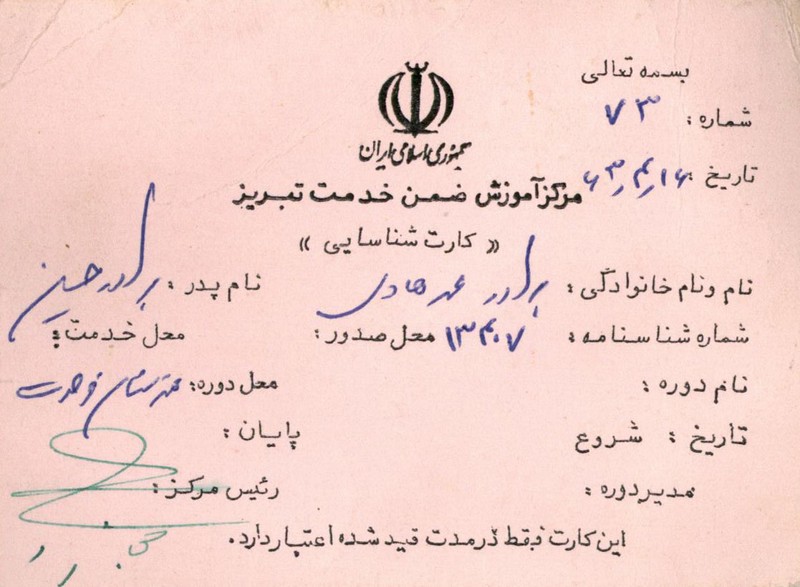 بسمه تعالی
شماره : ۷۳
جمهوری اسلامی ایران
تاریخ : ۶۳,۴,۱۶
مرکز آموزش ضمن خدمت تبریز
« کارت شناسایی »
نام و نام خانوادگی : برادر محمد هادی نام پدر : برادر حسین
شماره شناسنامه : ۱۳۴۰۷ محل صدور : محل خدمت :
نام دوره : محل دوره :
تاریخ : شروع پایان :
مدیر دوره : رئیس مرکز :
این کارت فقط در مدت قید شده اعتبار دارد.